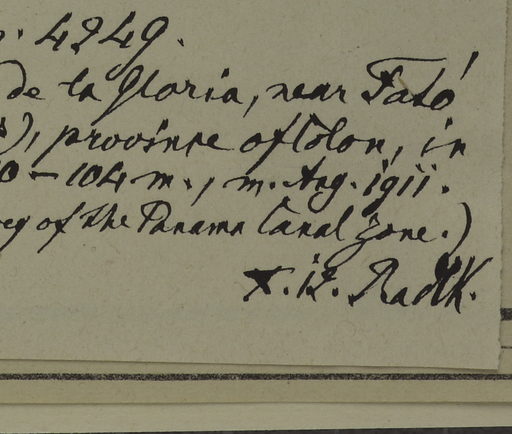 4249.
de la Gloria, near Fató
), province of Colon, in
0-104 m., m. Aug. 1911.
of the Panama Canal Zone.)
det. Radlk.